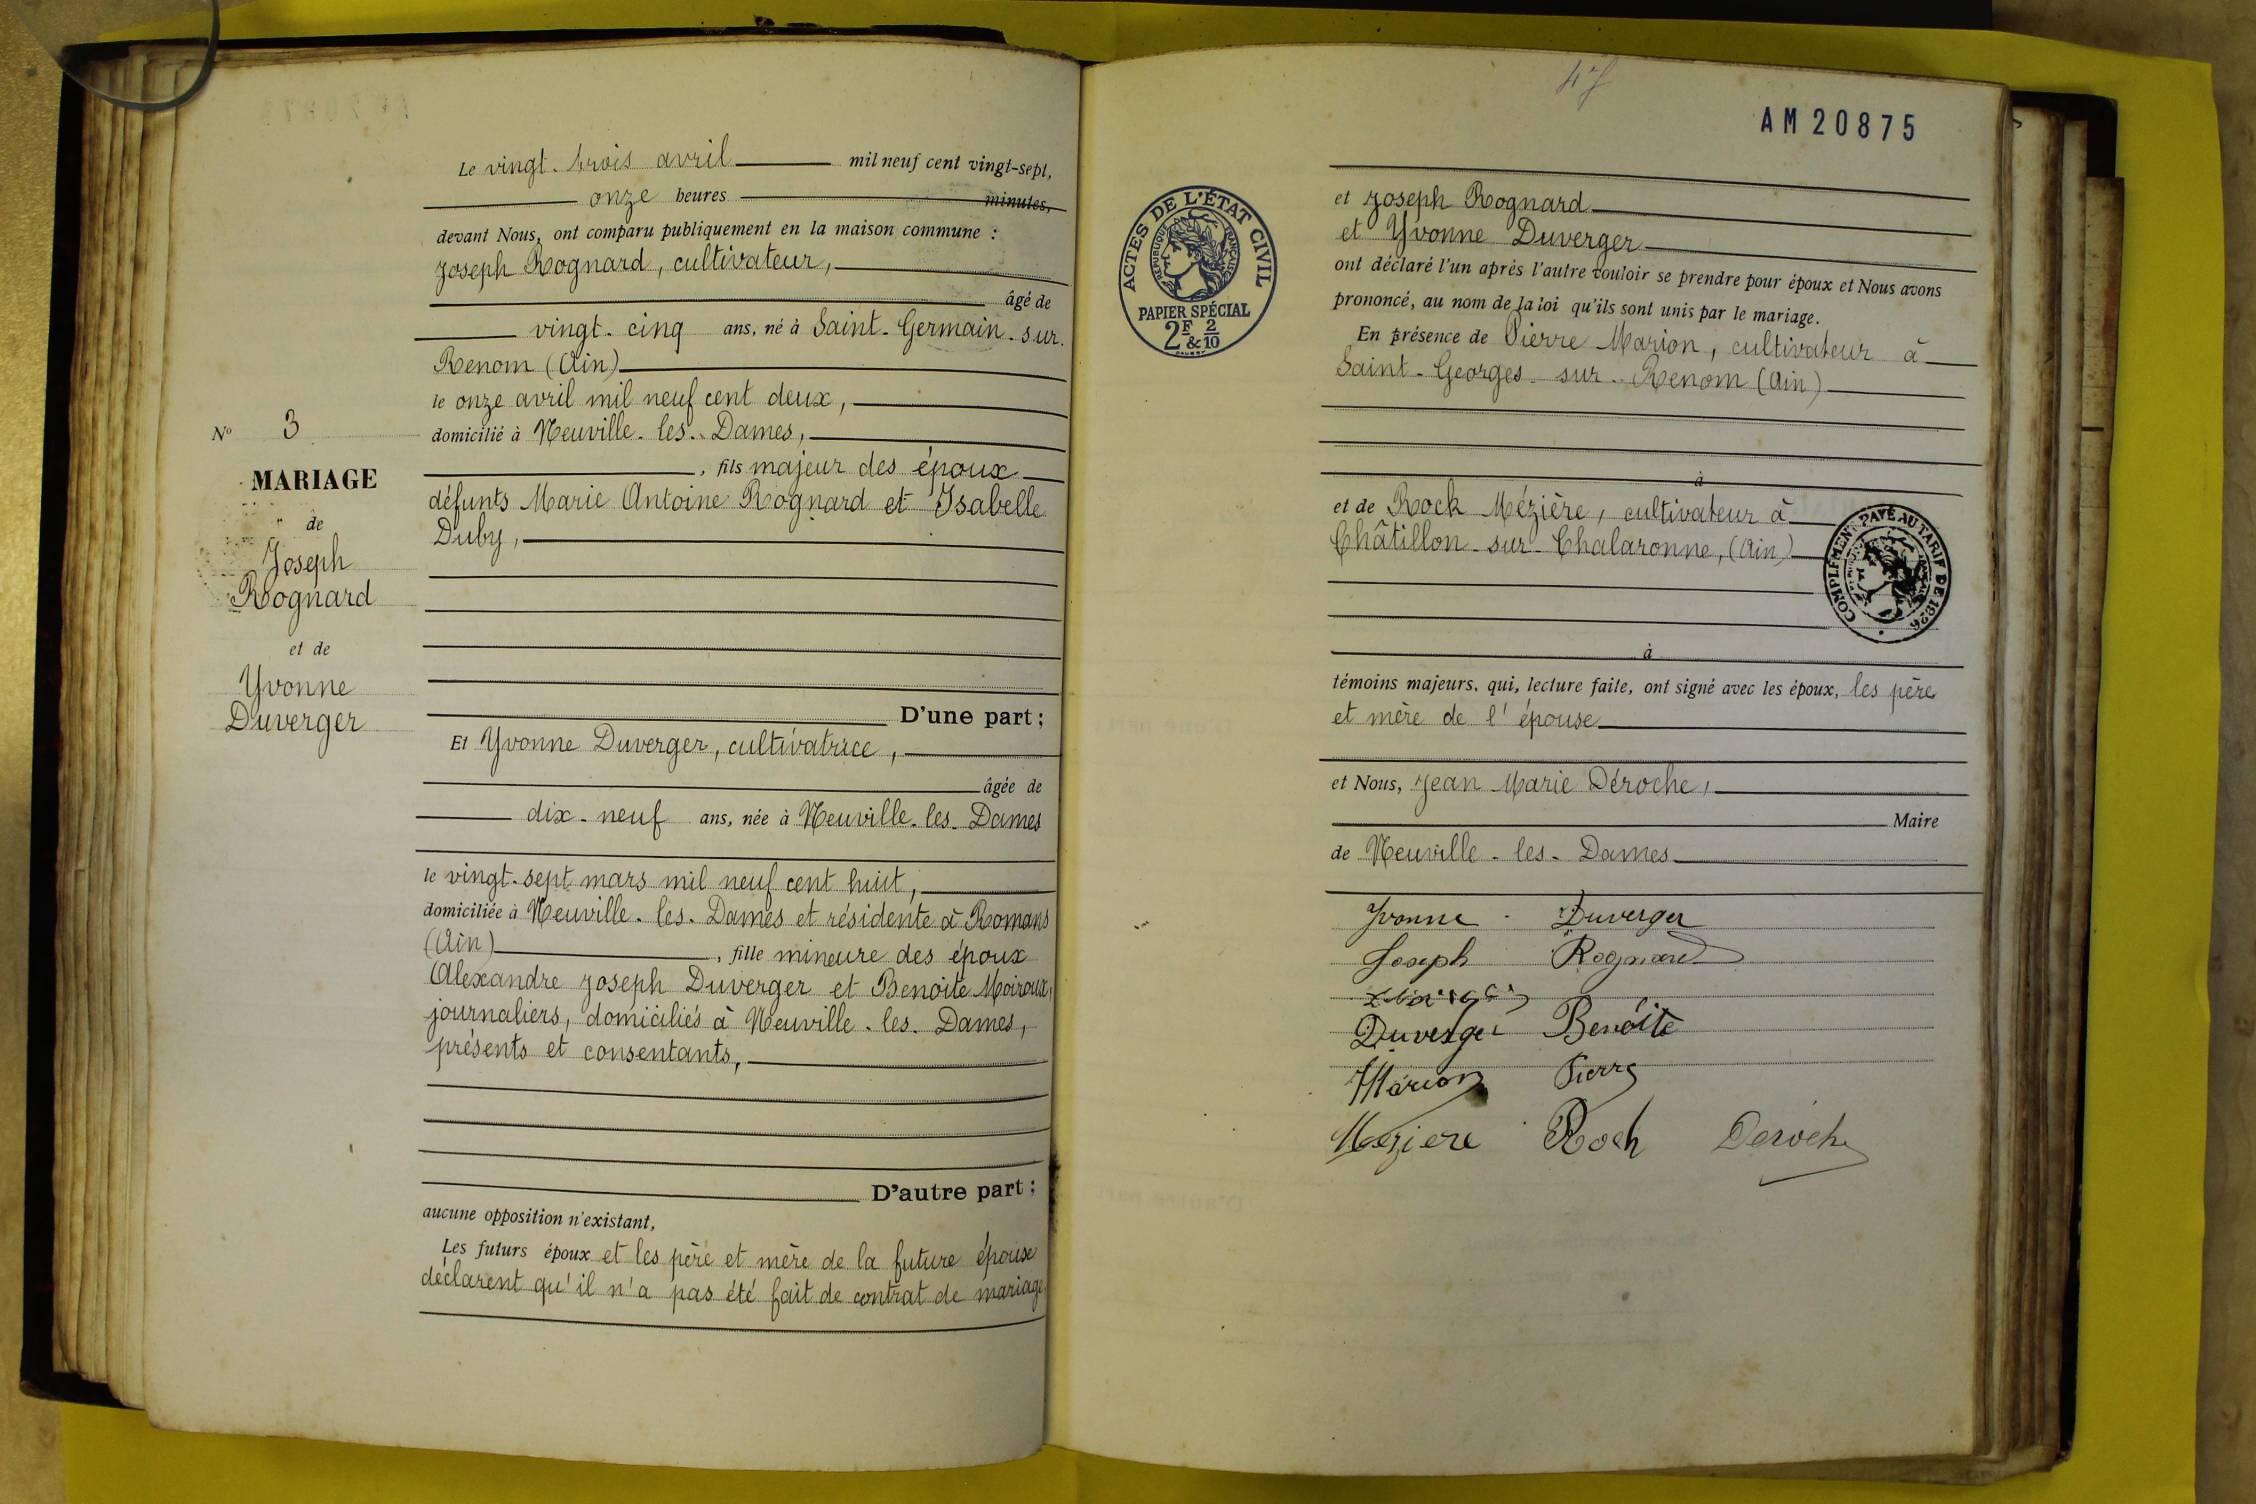 Le vingt-trois avril mil neuf cent vingt-sept,
onze heures minutes,
devant Nous, ont comparu publiquement en la maison commune :
Joseph Rognard, cultivateur,
âgé de
vingt-cinq ans, né à Saint-Germain-sur-
Renom (Ain)
le onze avril mil neuf cent deux,
domicilié à Neuville-les-Dames,
, fils majeur des époux
défunts Marie Antoine Rognard et Isabelle
Duby,
D'une part ;
Et Yvonne Duverger, cultivatrice,
âgée de
dix-neuf ans, née à Neuville-les-Dames
le vingt-sept mars mil neuf cent huit,
domiciliée à Neuville-les-Dames et résidente à Romans
(Ain) , fille mineure des époux
Alexandre Joseph Duverger et Benoite Moiroux,
journaliers, domiciliés à Neuville-les-Dames,
présents et consentants,
D'autre part ;
aucune opposition n'existant,
Les futurs époux et les père et mère de la future épouse
déclarent qu'il n'a pas été fait de contrat de mariage
N° 3
MARIAGE
de
Joseph
Rognard
et de
Yvonne
Duverger
47
AM20875
ACTES DE L'ÉTAT CIVIL
RÉPUBLIQUE FRANÇAISE
PAPIER SPÉCIAL
2F & 2/10
et Joseph Rognard
et Yvonne Duverger
ont déclaré l'un après l'autre vouloir se prendre pour époux et Nous avons
prononcé, au nom de la loi qu'ils sont unis par le mariage.
En présence de Pierre Marion, cultivateur à
Saint-Georges-sur-Renom (Ain)
à
et de Rock Mézière, cultivateur à
Châtillon-sur-Chalaronne, (Ain)
COMPLÉMENT PAYÉ AU TARIF DE 1926
à
témoins majeurs, qui, lecture faite, ont signé avec les époux, les père
et mère de l'épouse
et Nous, Jean Marie Déroche,
Maire
de Neuville-les-Dames
Yvonne Duverger
Joseph Rognard
Duverger Benoite
Marion Pierre
Meziere Roch Deroche